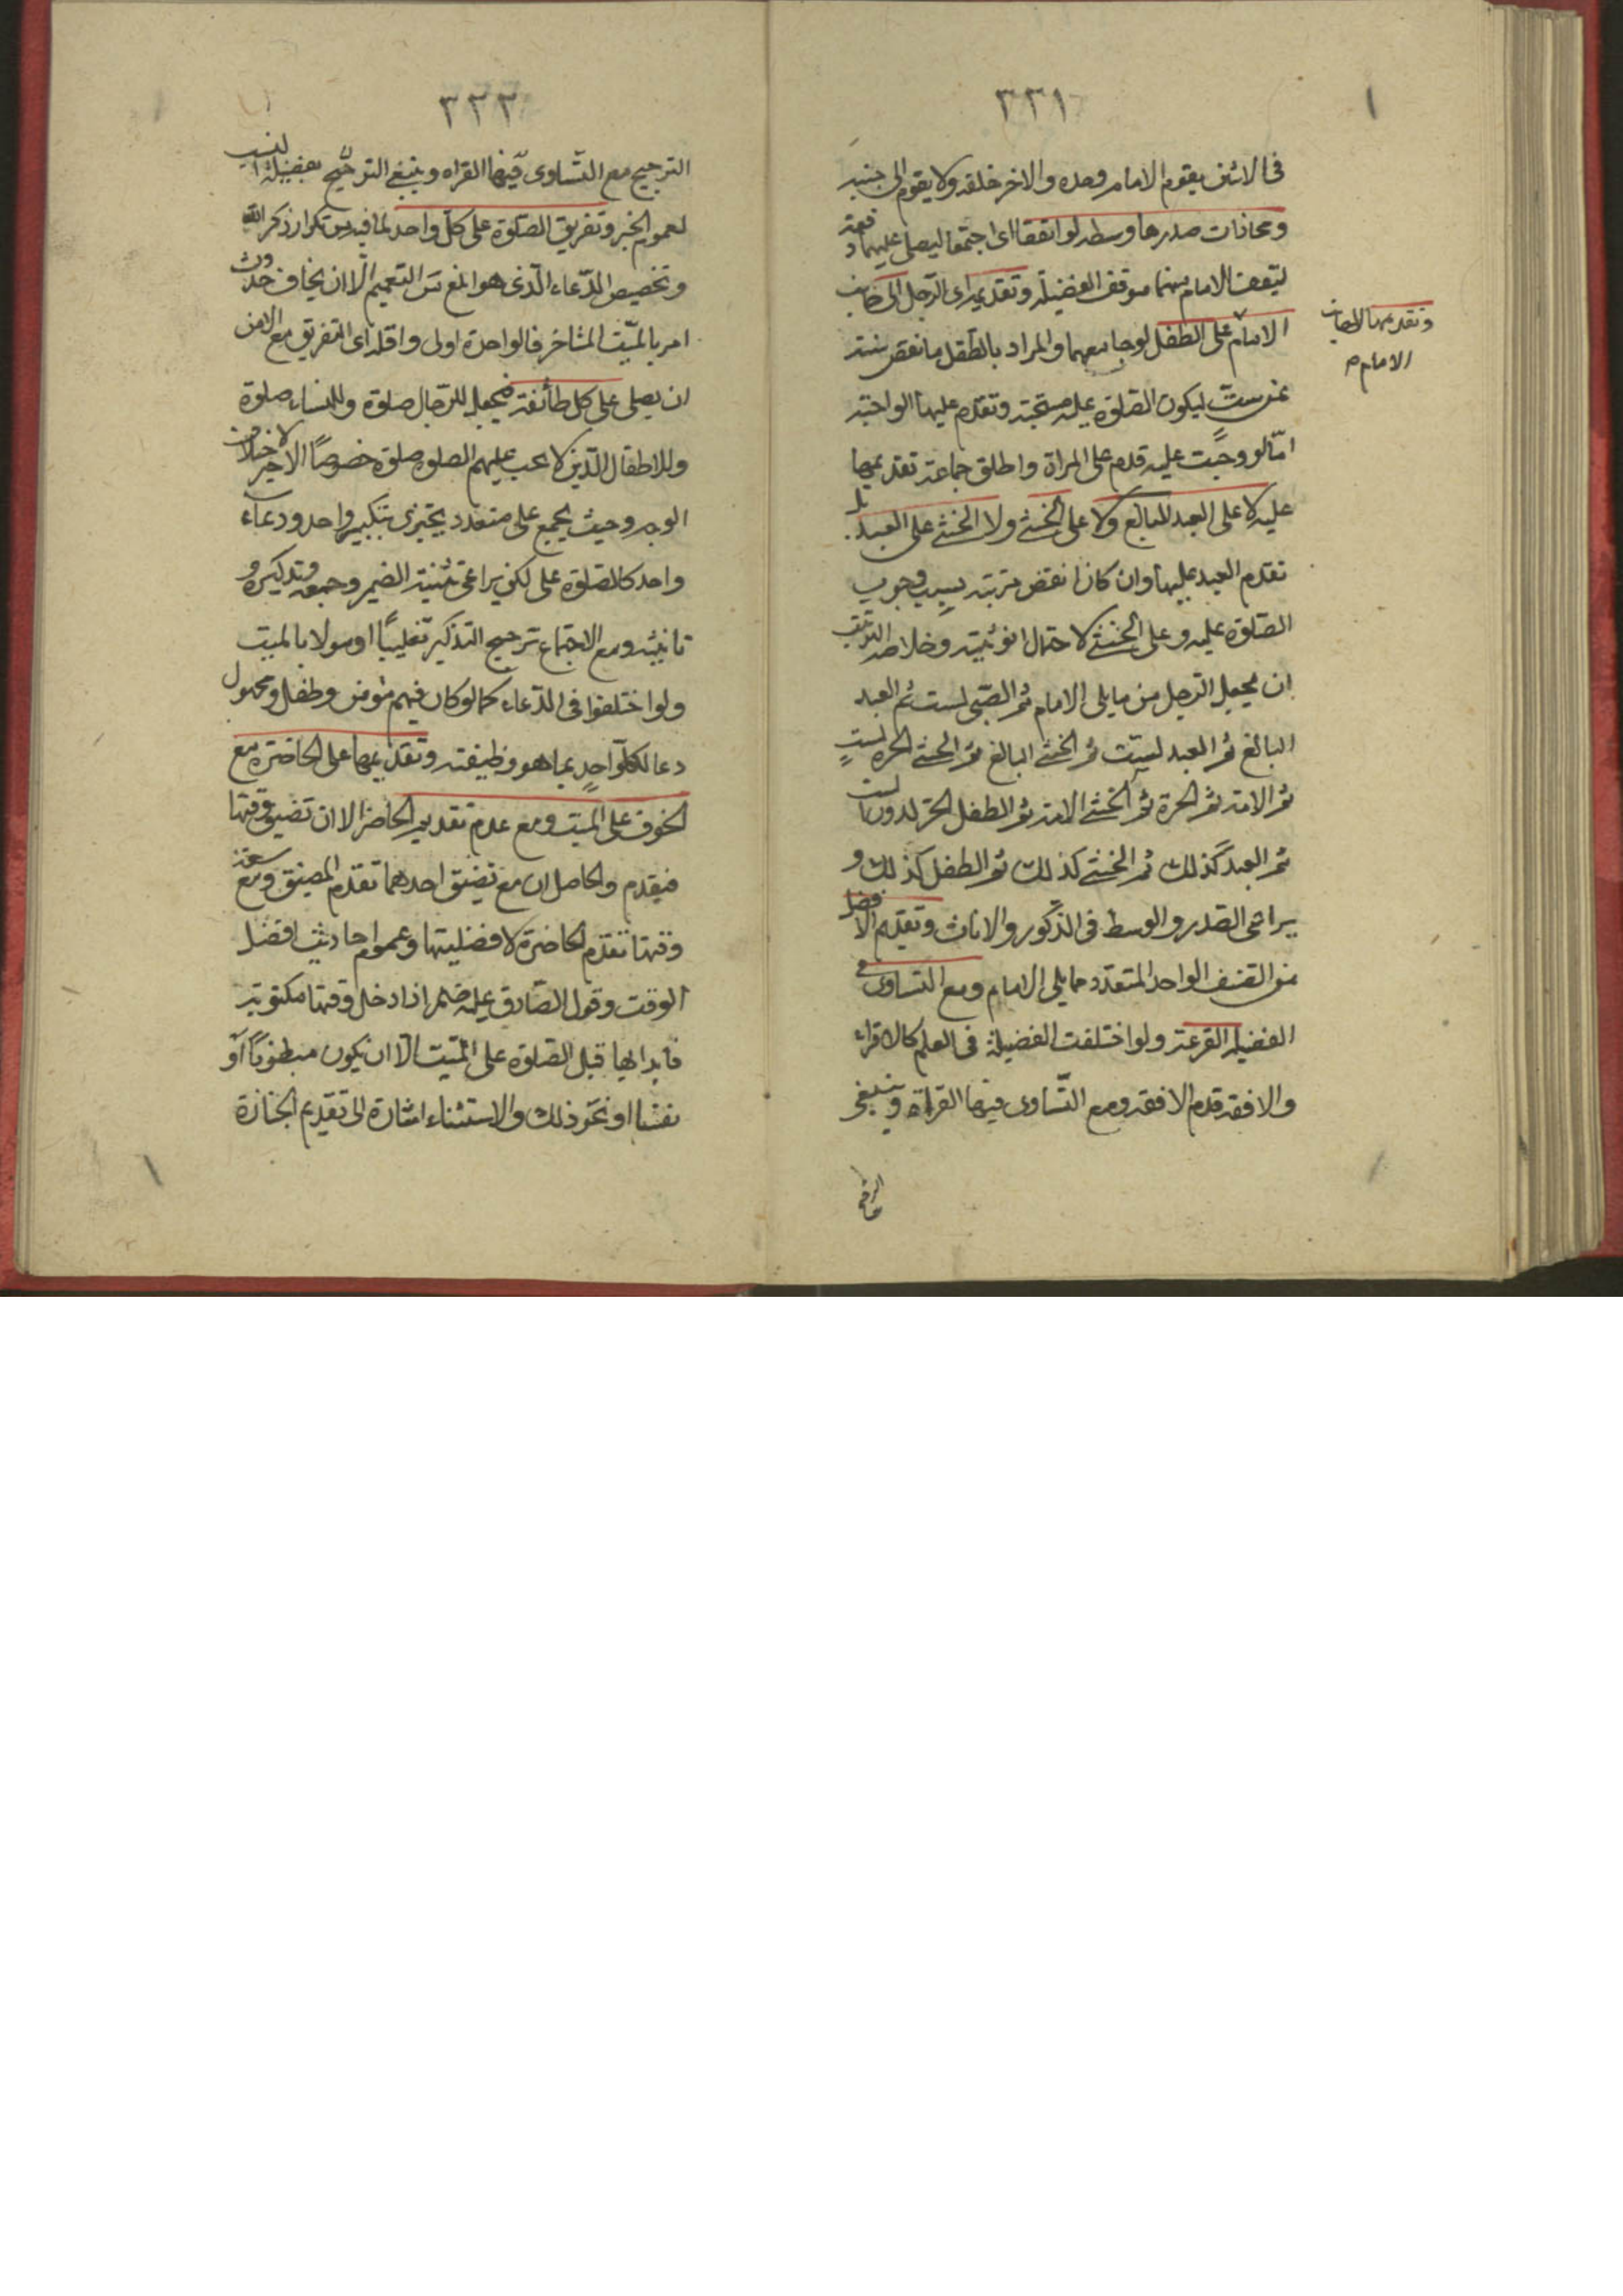 ٣٣١
في الاثنين يقوم الامام وحده والاخر خلفه ولا يقوم الى جنبه
ومحاذات صدرها وسطه لو اتفقا اى اجتمعا ليصلى عليهما دفعة
ليقف الامام منهما موقف الفضيلة وتقديمه اى الرجل الى جانب
الامام على الطفل لو جامعهما والمراد بالطفل ما نقص سنه
وتقديمها الى جانب
الامام م
عن ست ليكون الصلوة عليه مستحبة وتقدم عليها الواجبة
امّا لو وجبت عليه قدم على المراة واطلق جماعة تقديمها
عليه لا على العبد البالغ ولا على الخنثى ولا الخنثى على العبد بل
تقدم العبد عليها وان كان انقص مرتبة بسبب وجوب
الصّلوة عليه وعلى الخنثى لاحتمال انوثيته وخلاصة الترتيب
ان يجعل الرجل من مايلى الامام ثم الصّبى لست ثم العبد
البالغ ثم العبد لست ثم الخنثى البالغ ثم الخنثى الحرة لست
ثم الامة ثم الحرة ثم الخنثى الامة ثم الطفل الحرّ لدون الست
ثم العبد كذلك ثم الخنثى كذلك ثم الطفل كذلك و
يراعى الصدر والوسط في الذّكور والاناث وتقديم الافضل
من الصّنف الواحد المتعدّد مما يلى الامام ومع التساوى في
الفضيلة القرعة ولو اختلفت الفضيلة في العلم كالاقراء
والافقه قدم الافقه ومع التّساوى فيهما القراة وينبغى
٣٣٢
الترجيح مع التّساوى فيهما القراه وينبغى الترجيح بفضيلة النسب
لعموم الخبر وتفريق الصّلوة على كلّ واحد لما فيه من تكرار ذكر الله
وتخصيص الدّعاء الّذى هو ابلغ من التعميم الّا ان يخاف حدوث
امر بالميّت المتاخر فالواحدة اولى واقله اى التفريق مع الامن
ان يصلى على كل طائفة فيجعل للرجال صلوة وللنساء صلوة
وللاطفال الّذين لا تجب عليهم الصلوة صلوة خصوصاً الاخير لاختلاف
الوجه وحيث يجمع على متعدد يجتزى بتكبير واحد ودعاء
واحد كالصّلوة على لكن يراعى تثنية الضمير وجمعه وتذكيره و
تانيثه ومع الاجتماع ترجيح التذكير تغليباً او مولا بالميت
ولو اختلفوا في الدّعاء كما لو كان فيهم مؤمن وطفل ومجهول
دعا لكل واحد بما هو وظيفته وتقديمها على الحاضرة مع
الخوف على الميت ومع عدم تقديم الحاضر الا ان تضيق وقتها
فيقدم والحاصل ان مع تضيّق احدهما تقدم المضيق ومع سعة
وقتها تقدم الحاضرة لافضليتها وعموم احاديث افضل
الوقت وقول الصّادق عليه ضم اذا دخل وقتها مكتوبة
فابدا بها قبل الصّلوة على الميّت الّا ان يكون مبطونًا او
نفسا او نحو ذلك والاستثناء اشارة الى تقديم الجنازة